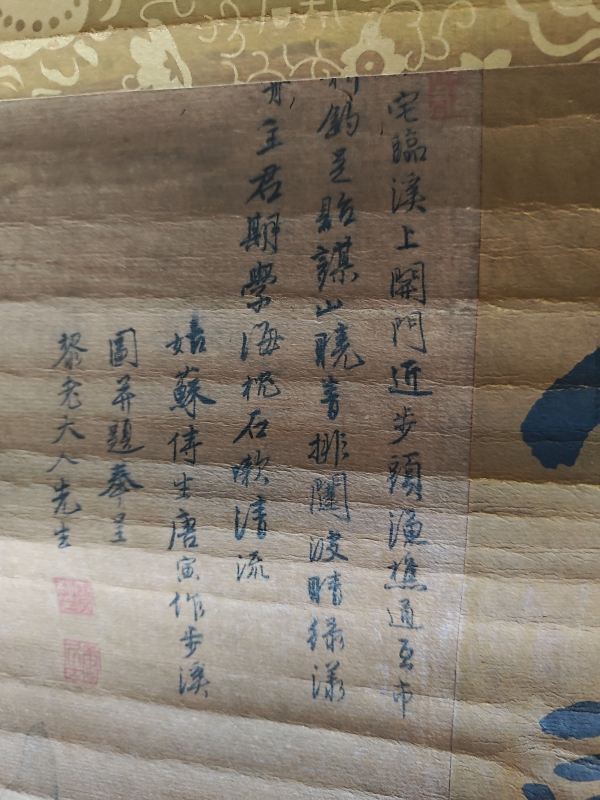 宅臨溪上開門近步頭漁樵通互市
釣足貽謀山曉青排闥波晴綠漾
舟主君期學海枕石漱清流
姑蘇侍生唐寅作步溪
圖并題奉呈
黎老大人先生